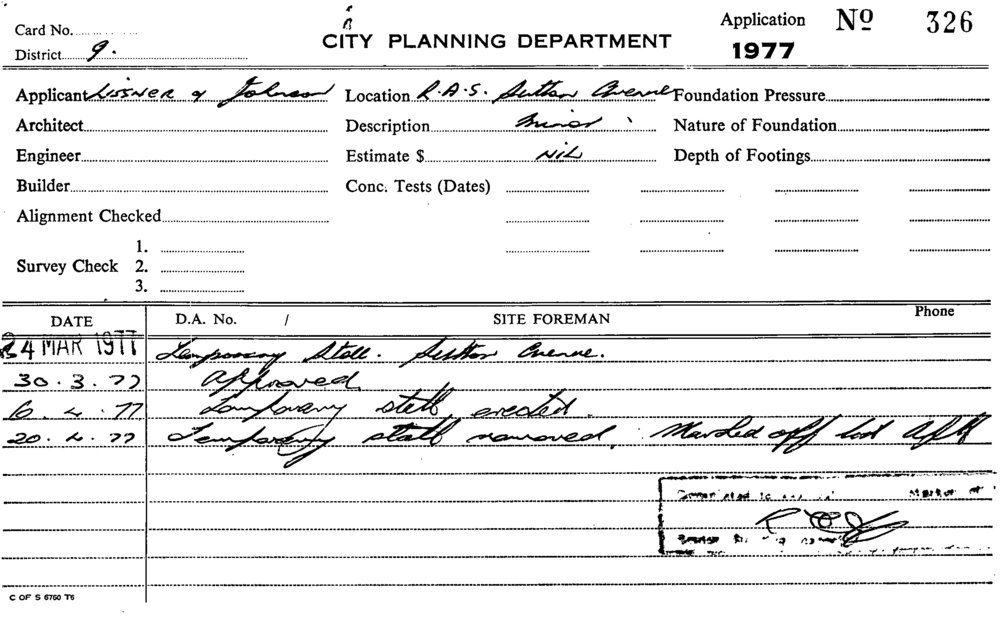 Card No.
District 9.
CITY PLANNING DEPARTMENT
Application Nº 326
1977
Applicant Lissner & Johnson Location R.A.S. Sutton Avenue Foundation Pressure
Architect Description Minor Nature of Foundation
Engineer Estimate $ NIL Depth of Footings
Builder Conc. Tests (Dates)
Alignment Checked
1.
Survey Check 2.
3.
DATE D.A. No. / SITE FOREMAN Phone
24 MAR 1977 Temporary Stall. Sutton Avenue.
30.3.77 Approved
6.4.77 Temporary stall erected.
20.4.77 Temporary stall removed. Marked off
C OF S 6760 T6